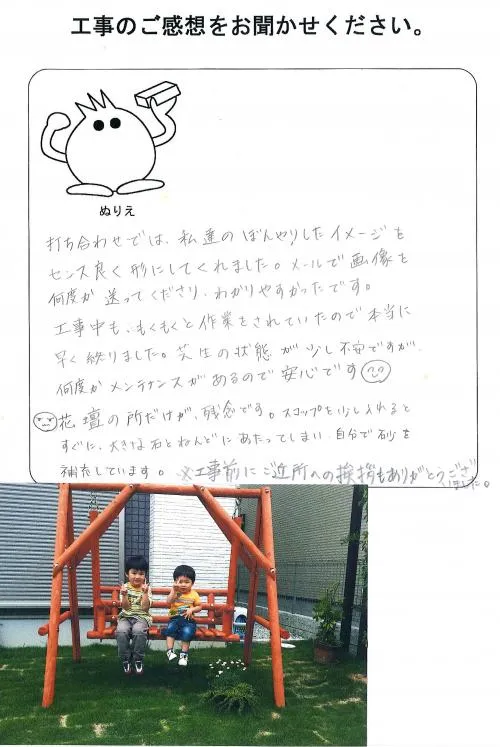 工事のご感想をお聞かせください。
ぬりえ
打ち合わせでは、私達のぼんやりしたイメージを
センス良く形にしてくれました。メールで画像を
何度か送ってくださり、わかりやすかったです。
工事中も、もくもくと作業をされていたので本当に
早く終りました。芝生の状態が少し不安ですが、
何度かメンテナンスがあるので安心です
花壇の所だけが、残念です。スコップを少し入れると
すぐに、大きな石とねんどにあたってしまい、自分で砂を
補充しています。※工事前にご近所への挨拶もありがとうござ
いました。